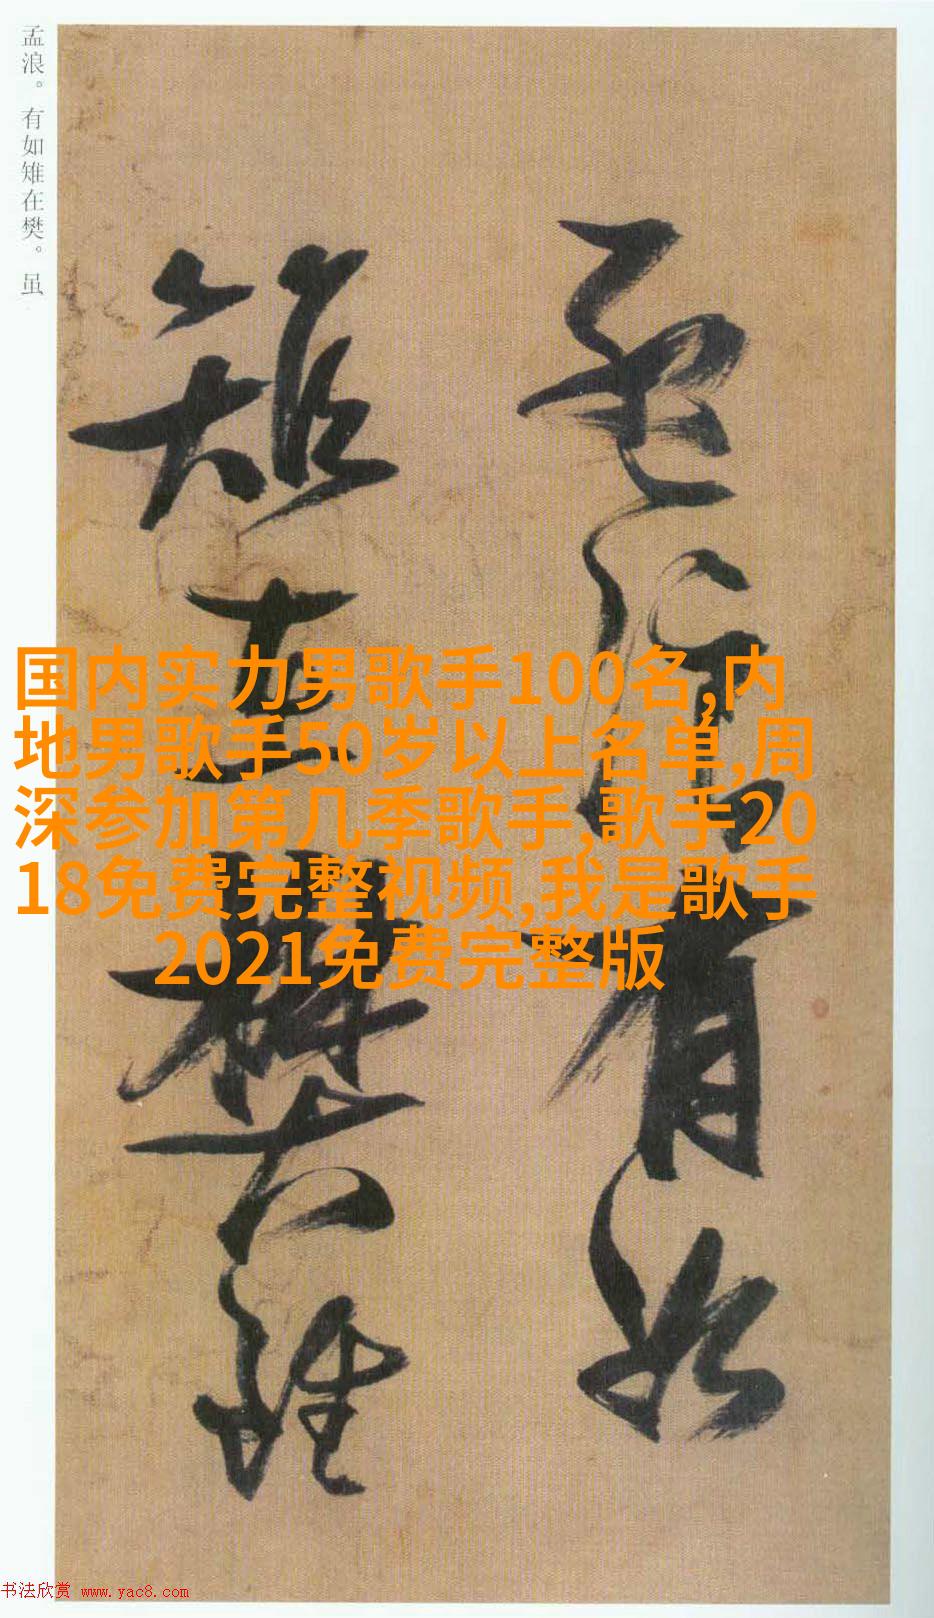 孟浪。有如雉在樊。虽
孟浪有如
雉在樊虽
国内实力男歌手100名,内
地男歌手50岁以上名单,周
深参加第几季歌手,歌手20
18免费完整视频,我是歌手
2021免费完整版
书法欣赏 www.yac8.com